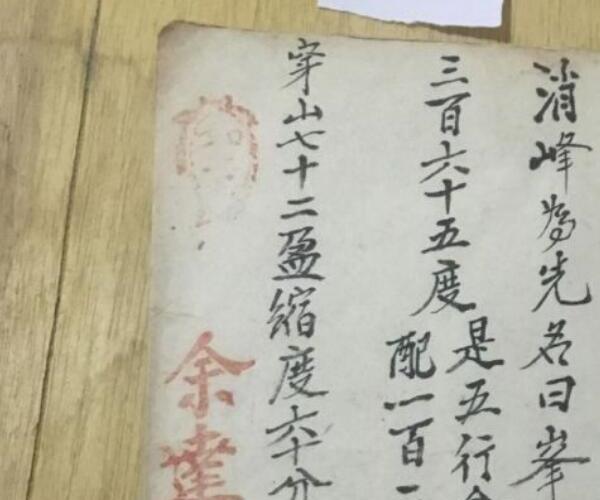 消峰為先名曰峯
三百六十五度
是五行
配一百
穿山七十二盈縮度六十分
余達